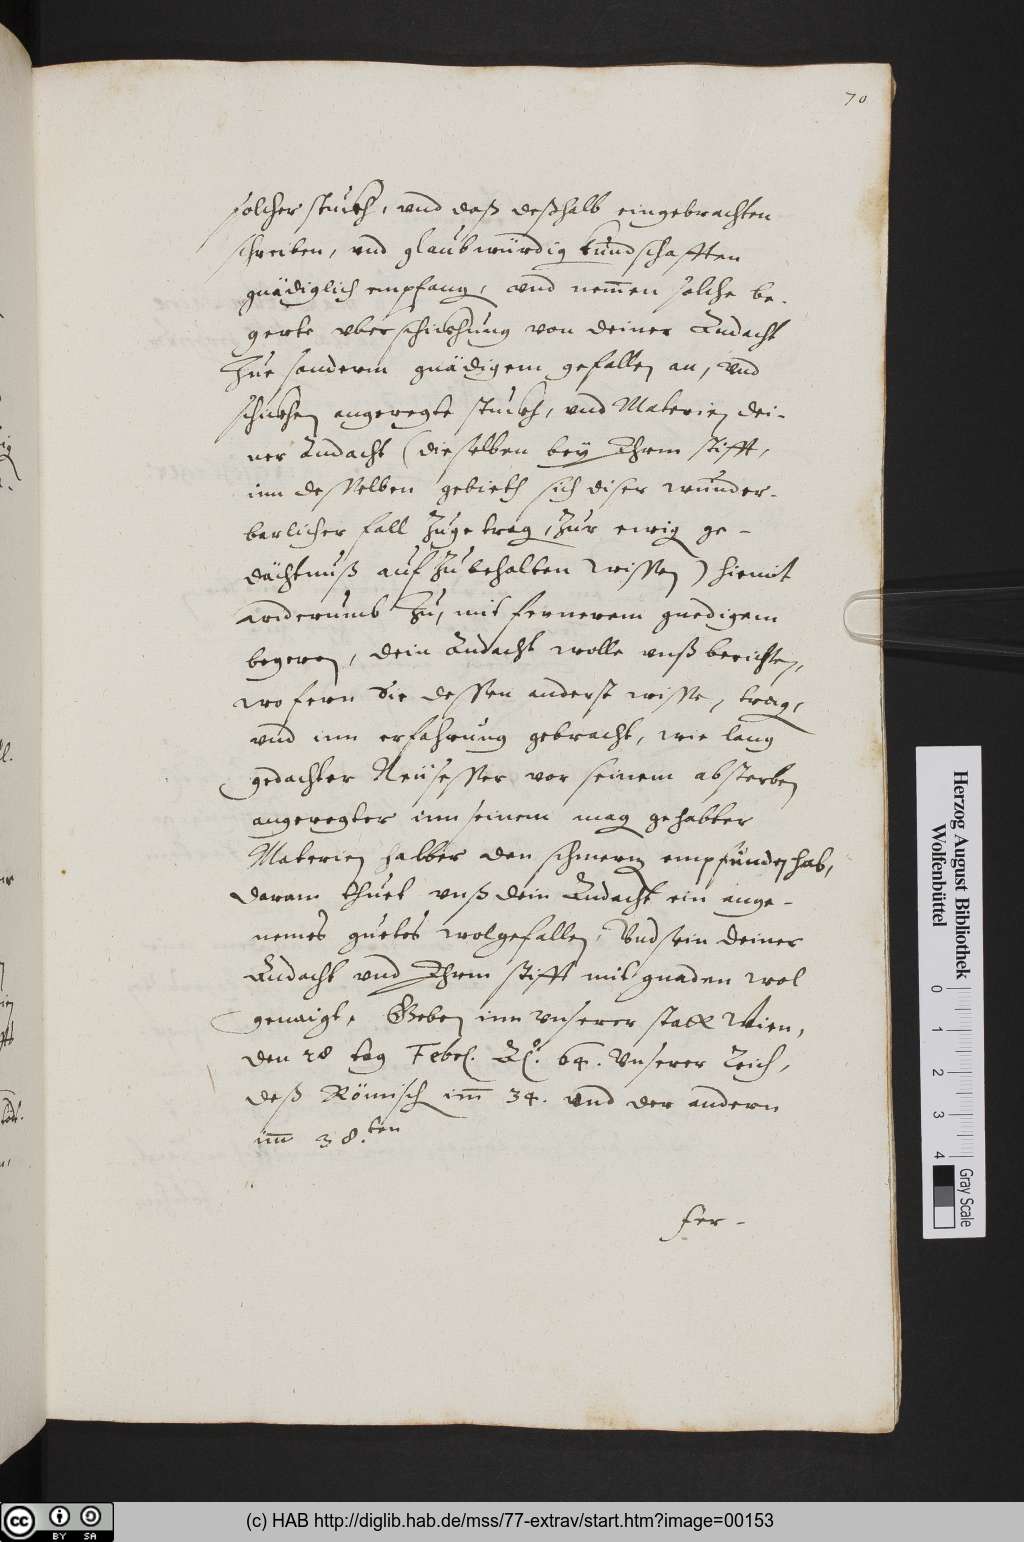 70
solcher stuckh, vnd daß deßhalb eingebrachten
schreiben, vnd glaubwürdig kundschafften
gnädiglich empfang, vnd nemen solche be-
gerte vberschickhung von deiner Andacht
Zue sonderm gnädigem gefallen an, vnd
schickhen angeregte stuckh, vnd Materien dei-
ner Andacht (dieselben bey Ihrem stifft,
inn desselben gebieth sich diser wunder-
barlicher fall Zugetrag, Zur ewig ge-
dächtnuß auf Zubehalten wissen) hiemit
widerumb Zu, mit fernerem gnedigem
begeren, dein Andacht wolle vnß berichten,
wo fern Sie dessen anderst wisse, trag,
vnd inn erfahrung gebracht, wie lang
gedachter Neüsesser vor seinem absterben
angeregter inn seinem mag gehabter
Materien halber den schmerz empfunden hab,
daran thuet vnß dein Andacht ein ange-
nemes guetes wolgefallen, Vnd sein deiner
Andacht vnd Ihrem stifft mit gnaden wol
genaigt. Geben inn vnserer statt Wien,
den 28 tag Feb. 64. Vnserer Reich,
deß Römisch im 34. vnd der andern
im 38.ten
fer-
Herzog August Bibliothek
Wolfenbüttel
0 1 2 3 4
Gray Scale
cc BY SA
(c) HAB http://diglib.hab.de/mss/77-extrav/start.htm?image=00153